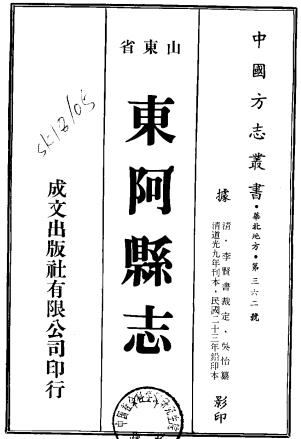 中國方志叢書・華北地方・第三六二號
據
清・李賢書裁定・吳怡纂
清道光九年刊本・民國二十三年鉛印本
影印
山東省
東阿縣志
成文出版社有限公司印行